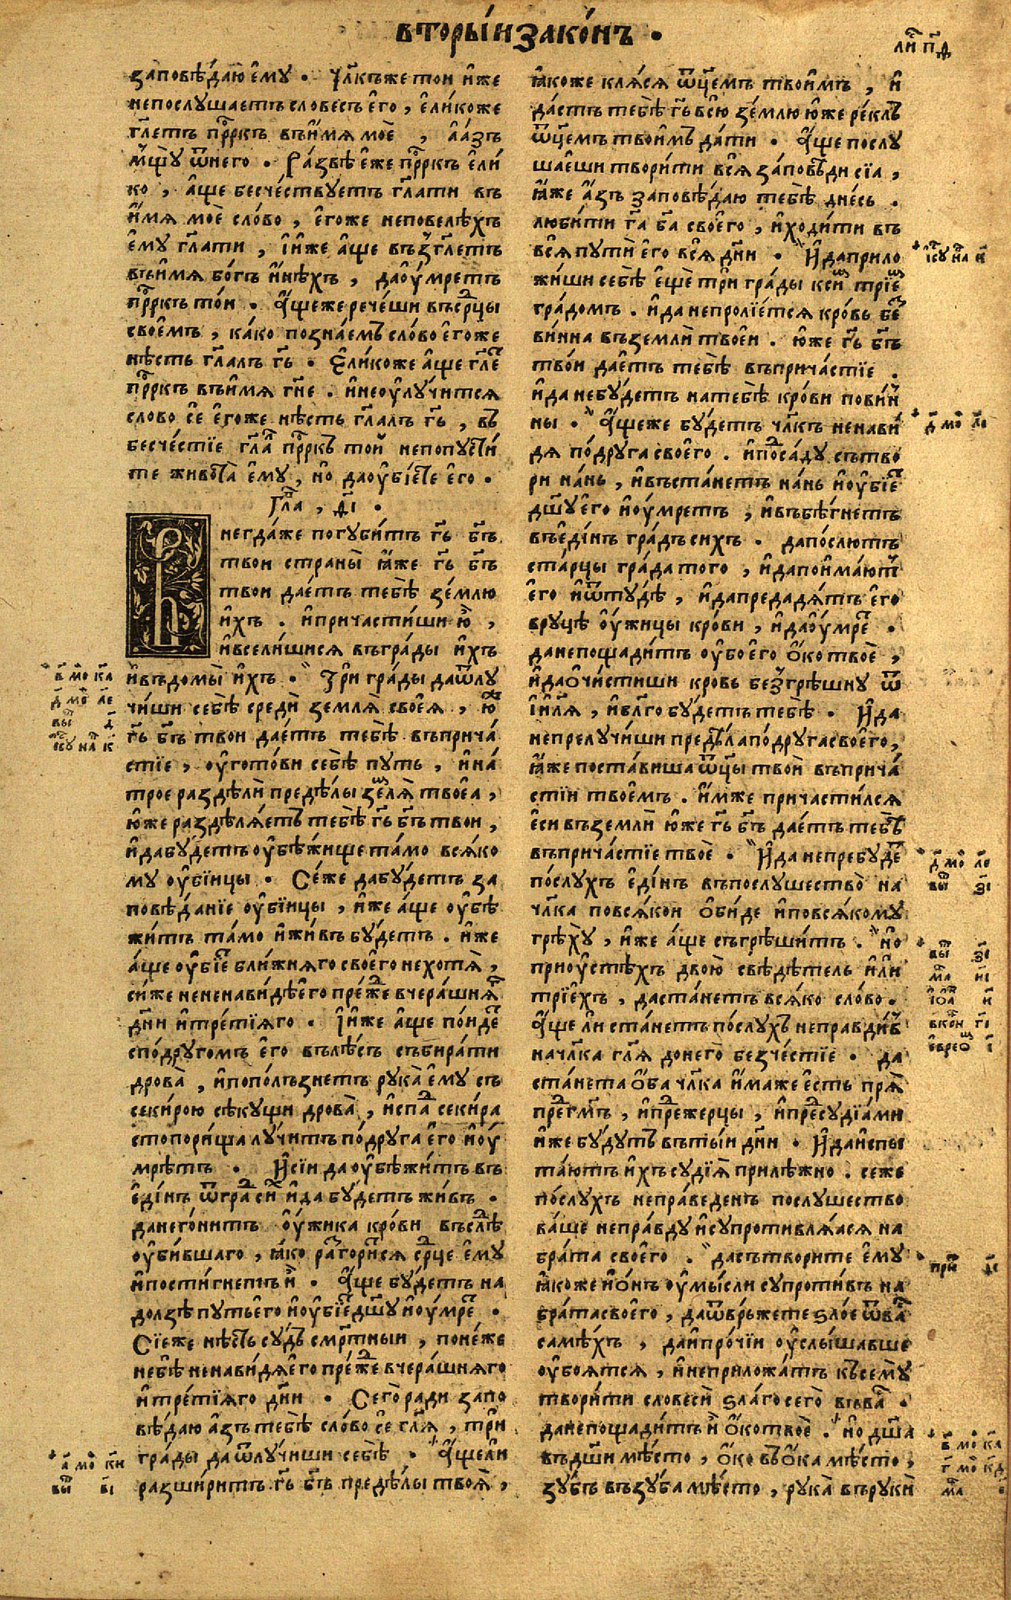 вторы́и зако́нъ ·
ли́ п҃д
заповѣ́даю є҆му̀ · Ч҃лкъ же то́и и҆́же
непослу́шаетъ слове́съ є҆го̀ , є҆ли́коже
гл҃етъ пр҃ркъ въ и҆́мя моѐ , а҆ а҆́зъ
мщꙋ̀ ѿ него̀ · Ра́звѣ є҆́же пр҃ркъ є҆ли́
ко , а҆́ще бесче́ствуетъ гл҃ати въ
и҆́мя моѐ сло́во , є҆го́же неповелѣ́хъ
є҆му̀ гл҃ати , і҆ и҆́же а҆́ще възгл҃етъ
въ и҆́мя бо́гъ и҆нѣ́хъ , да о҆у҆́мретъ
пр҃ркъ то́и · А҆́щеже рече́ши въ се́рцы
свое́мъ , ка́ко позна́емъ сло́во є҆го́же
нѣ́сть гл҃алъ г҃ь · Є҆ли́коже а҆́ще гл҃е
пр҃ркъ въ и҆́мя гн҃е . и҆ нео҆у҆лучи́тся
сло́во сѐ є҆го́же нѣ́сть гл҃алъ г҃ь , въ
бесче́стїе гл҃а пр҃ркъ то́й непопусти́
те живота̀ є҆му̀ , но̀ да о҆у҆бїе́те є҆го̀ ·
Гл҃а , д҃і ·
Внегда́же погуби́тъ г҃ь б҃ъ
тво́и страны̀ ꙗ҆́же г҃ь б҃ъ
тво́и дае́тъ тебѣ̀ зе́млю
и҆́хъ . и҆ причасти́ши ю҆̀ ,
и҆ всели́шися въ гра́ды и҆́хъ
и҆ въ до́мы и҆́хъ · Трѝ гра́ды да ѿлу
чи́ши себѣ̀ средѝ земля̀ своея̀ , ю҆́же
г҃ь б҃ъ тво́и дае́тъ тебѣ̀ въ прича́
стїе , о҆у҆гото́ви себѣ̀ пу́ть , и҆ на́
трое раздѣлѝ предѣ́лы земля̀ твоеа̀ ,
ю҆́же раздѣля́етъ тебѣ̀ г҃ь б҃ъ тво́и ,
и҆ да бу́детъ о҆у҆бѣ́жище та́мо вся́ко
му о҆у҆бі́ицы · Се́же да бу́детъ за
повѣ́данїе о҆у҆бі́ицы , и҆́же а҆́ще о҆у҆бѣ
жи́тъ та́мо и҆ жи́въ бу́детъ . и҆́же
а҆́ще о҆у҆бїе́ бли́жняго своего̀ нехотя̀ ,
си́же не ненави́дѣ є҆го̀ пре́же вчера́шня
дн҃и и҆ тре́тїяго · І҆ и҆́же а҆́ще по́иде
с по́другомъ є҆го̀ въ лѣ́съ събира́ти
дрова̀ , и҆ попо́лъзнетъ рука̀ є҆му̀ съ
секи́рою сѣку́щи дрова̀ , и҆ спа́д секи́ра
с топори́ща лу́читъ по́друга є҆го̀ и҆ о҆у҆
мрѣ́тъ · И҆ сі́и да о҆у҆бѣжи́тъ въ
є҆ди́нъ ѿ гра́д си́х и҆ да бу́детъ жи́въ ·
да не го́нитъ о҆у҆́жика кро́ви въ слѣ́
о҆у҆би́вшаго , ꙗ҆́ко разгорѝся се́рце є҆му̀
и҆ пости́гнетъ и҆̀ · А҆́ще бу́детъ на
долзѣ̀ путь є҆го̀ и҆ о҆у҆бїе́ дш҃у и҆ о҆у҆́мре ·
Сїе́же нѣ́сть су́дъ сме́ртныи , поне́же
небѣ̀ ненави́дя є҆го̀ пре́же вчера́шняго
и҆ тре́тїяго дн҃и · Сего̀ ра́ди запо
вѣ́даю а҆́зъ тебѣ̀ сло́во сѐ гл҃я , трѝ
гра́ды да ѿлучи́ши себѣ̀ · А҆́щели
разшири́тъ г҃ь б҃ъ предѣ́лы твоя̀ ,
ꙗ҆́коже кля́ся ѿц҃емъ твои́мъ , и҆
да́стъ тебѣ̀ г҃ь всю̀ зе́млю ю҆́же ре́клъ
ѿц҃емъ твои́мъ да́ти · А҆́ще послу
ша́еши твори́ти вся̀ за́повѣди сїа̀ ,
ꙗ҆́же а҆́зъ заповѣ́даю тебѣ̀ дне́сь .
люби́ти г҃а б҃а своего̀ , и҆ ходи́ти въ
вся̀ путѝ є҆го̀ вся̀ дн҃и · И҆ да прило
жи́ши себѣ̀ є҆щѐ трѝ гра́ды к си́м трїе́м
гра́домъ . и҆ да не пролїе́тся кро́вь бе
ви́нна въ землѝ твое́и . ю҆́же г҃ь б҃ъ
тво́и дае́тъ тебѣ̀ въ прича́стїе .
и҆ да не бу́детъ на тебѣ̀ кро́ви пови́н
ны · А҆́щеже бу́детъ ч҃лкъ ненави́
дя по́друга своего̀ . и҆ посаду сътво
ри на́нь , и҆ въста́нетъ на́нь и҆ о҆у҆бїе́
дш҃у є҆го̀ и҆ о҆у҆́мретъ , и҆ въбѣ́гнетъ
въ є҆ди́нъ гра́дъ си́хъ · да по́слютъ
ста́рцы гра́да того̀ , и҆ да поима́ют
є҆го̀ и҆ ѿту́дѣ , и҆ да предадя́тъ є҆го̀
в ру́цѣ о҆у҆́жицы кро́ви , и҆ да о҆у҆́мре ·
да не пощади́тъ о҆у҆́бо є҆го̀ о҆́ко твоѐ ,
и҆ да о҆чи́стиши кро́вь безгрѣ́шну ѿ
і҆и҃ля , и҆ бл҃го бу́детъ тебѣ̀ · И҆ да
не прелучи́ши предѣ́ла по́друга своего̀ ,
ꙗ҆́же поста́виша ѿц҃ы твоѝ въ прича́
стїи твое́мъ . и҆́мже причасти́лся
є҆сѝ въ землѝ ю҆́же г҃ь б҃ъ дае́тъ тебѣ̀
въ прича́стїе твоѐ · И҆ да не пребу́де
по́слухъ є҆ди́нъ въ послу́шество на
ч҃лка по вся́кои о҆би́де и҆ по вся́кому
грѣху̀ , и҆́же а҆́ще съгрѣши́тъ . но̀
при о҆у҆стѣ́хъ двою̀ свѣдѣ́тель и҆лѝ
трїе́хъ , да ста́нетъ вся́ко сло́во ·
А҆́ще ли ста́нетъ по́слухъ непра́вдив
на ч҃лка гл҃я до него̀ безче́стїе · да
ста́нета о҆́ба ч҃лка и҆́маже е́сть пря̀
пред г҃мъ , и҆ пред жерцы̀ , и҆ пред судїа́ми
и҆́же бу́дутъ въ ты́и дн҃и · И҆ да и҆спы
та́ютъ и҆́хъ судїя̀ прилѣ́жно . се́же
по́слухъ непра́веденъ послу́шество
ва́ще непра́вду и҆ супротивля́яся на
бра́та своего̀ . да сътвори́те є҆му̀
ꙗ҆́коже и҆ о҆́нъ о҆у҆мы́сли супроти́въ на
бра́та своего̀ , да ѿвръ́жете ѕло́е ѿ ва́с
самѣ́хъ , да и҆ про́чїи о҆у҆слы́шавше
о҆у҆боя́тся , и҆ не прилoжа́тъ къ сему̀
твори́ти словесѝ ѕла́го сего̀ въ ва́с ·
да не пощади́тъ и҆̀ о҆́ко твоѐ · но̀ дш҃а
въ дш҃и мѣ́сто , о҆́ко въ о҆́ка мѣ́сто ,
зу́бъ въ зу́ба мѣ́сто , рука̀ въ рукѝ